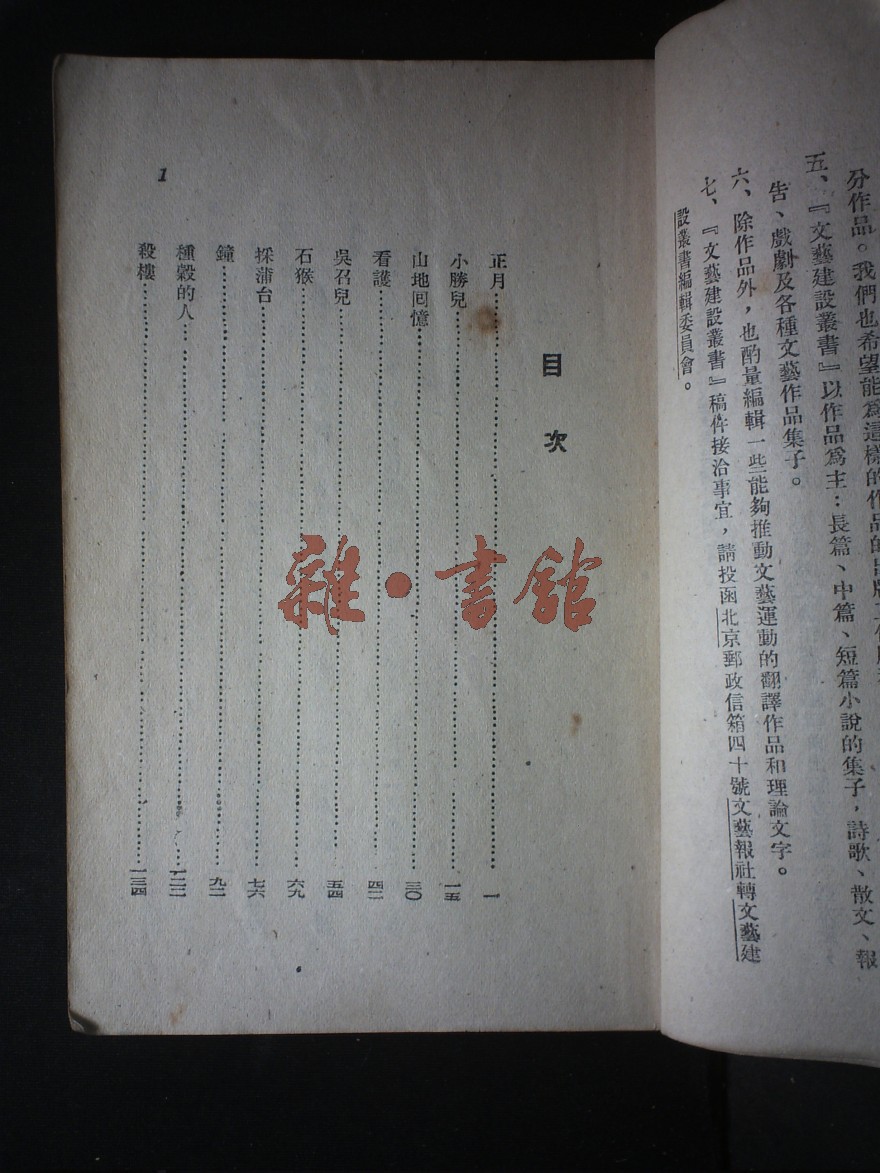 分作品。我們也希望能爲這樣的作品的出版工作服務
五、『文藝建設叢書』以作品爲主：長篇、中篇、短篇小說的集子，詩歌、散文、報
告、戲劇及各種文藝作品集子。
六、除作品外，也酌量編輯一些能夠推動文藝運動的翻譯作品和理論文字。
七、『文藝建設叢書』稿件接洽事宜，請投函北京郵政信箱四十號文藝報社轉文藝建
設叢書編輯委員會。
目次
正月……一
小勝兒……一五
山地回憶……三〇
看護……四二
吳召兒……五四
石猴……六九
採蒲台……七六
鐘……九二
種穀的人……一二二
殺樓……一三四
1
雜·書館